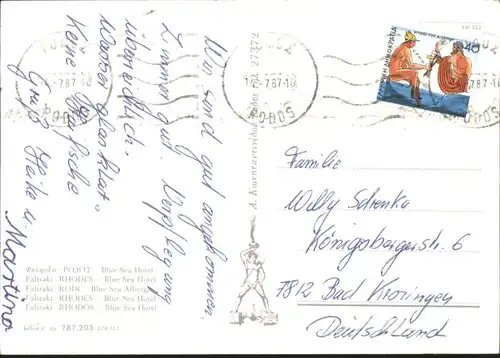 Wir sind gut angekommen.
Zimmer gut. Verpflegung
überreichlich.
Wasser glasklar
Keine Haifische
Gruß Heike u.
Martina
Φαληράκι ΡΟΔΟΣ Blue Sea Hotel
Faliraki RHODES Blue Sea Hotel
Faliraki RODI Blue Sea Albergo
Faliraki RHODES Blue Sea Hotel
Faliraki RHODOS Blue Sea Hotel
787.203
ΡΟΔΟΣ
7.87.10
ΡΟΔΟΣ
7.87.10
40
Familie
Willy Schenka
Königsbergerstr. 6
7812 Bad Krozingen
Deutschland